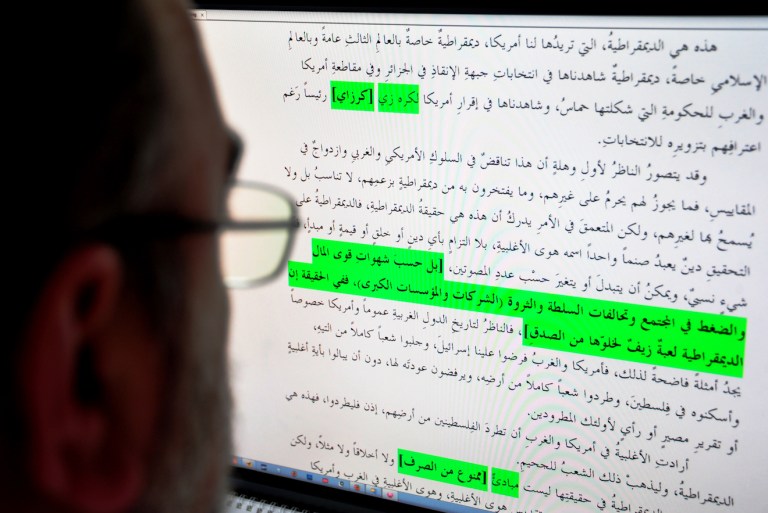 هذه هي الديمقراطيةُ، التي تريدُها لنا أمريكا، ديمقراطيةٌ خاصةٌ بالعالمِ الثالثِ عامةً وبالعالمِ
الإسلامي خاصةً، ديمقراطيةٌ شاهدناها في انتخاباتِ جبهةِ الإنقاذِ في الجزائرِ وفي مقاطعةِ أمريكا
والغربِ للحكومةِ التي شكلتها حماسُ، وشاهدناها في إقرارِ أمريكا لكره زي [كرزاي] رئيساً رَغم
اعترافِهم بتزويرِه للانتخاباتِ.
وقد يتصورُ الناظرُ لأولِ وهلةٍ أن هذا تناقضٌ في السلوكِ الأمريكي والغربي وازدواجٌ في
المقاييسِ، فما يجوزُ لهم يحرمُ على غيرِهم، وما يفتخرون به من ديمقراطيةٍ بزعمِهم، لا تناسبُ بل ولا
يُسمحُ بها لغيرِهم، ولكن المتعمقَ في الأمرِ يدركُ أن هذه هي حقيقةُ الديمقراطيةِ، فالديمقراطيةُ على
التحقيقِ دينٌ يعبدُ صنماً واحداً اسمه هوى الأغلبيةِ، بلا التزامٍ بأيِ دينٍ أو خلقٍ أو قيمةٍ أو مبدأٍ،
شيءٍ نسبيٌ، ويمكنُ أن يتبدلَ أو يتغيرَ حسْب عددِ المصوتين، [بل حسب شهوات قوى المال
والضغط في المجتمع وتحالفات السلطة والثروة (الشركات والمؤسسات الكبرى)، ففي الحقيقة إن
الديمقراطية لعبةٌ زيفٌ لخلوّها من الصدق]، فالناظرُ لتاريخِ الدولِ الغربيةِ عموماً وأمريكا خصوصاً
يجدُ أمثلةً فاضحةً لذلك، فأمريكا والغربُ فرضوا علينا إسرائيلَ، وجلبوا شعباً كاملاً من التيهِ،
وأسكنوه في فِلسطينَ، وطردوا شعباً كاملاً من أرضِه، ويرفضون عودتَه لها، دون أن يبالوا بأيةِ أغلبيةٍ
أو تقريرِ مصيرٍ أو رأيٍ لأولئك المطرودين.
أرادتِ الأغلبيةُ في أمريكا والغربِ أن تطردَ الفِلسطينين من أرضِهم، إذن فليطردوا، فهذه هي
الديمقراطيةُ، وليذهبْ ذلك الشعبُ للجحيمِ.
الديمقراطيةُ في حقيقتِها ليست مبادئَ [ممنوع من الصرف] ولا أخلاقاً ولا مثلاً، ولكن
هوى الأغلبيةِ، وهوى الأغلبيةِ في الغربِ وأمريكا